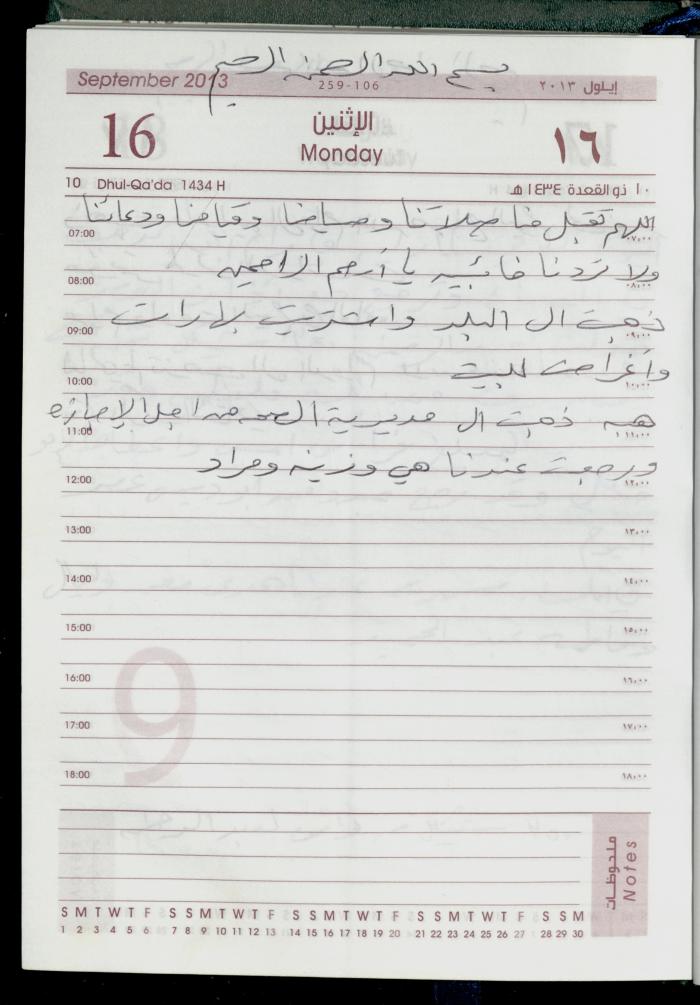 بسم الله الرحمن الرحيم
September 2013 259-106 إيلول ٢٠١٣
16 الإثنين ١٦
Monday
10 Dhul-Qa'da 1434 H ١٠ ذو القعدة ١٤٣٤ هـ
اللهم تقبل منا صلاتنا وصيامنا وقيامنا ودعائنا
07:00 ٠٧,٠٠
ولا تردنا خائبين يا أرحم الراحمين
08:00 ٠٨,٠٠
ذهبت ال البلد واشتريت
09:00 ٠٩,٠٠
وأغراض للبيت
10:00 ١٠,٠٠
هبه ذهبت ال مديرية الصحه من اجل الإجازه
11:00 ١١,٠٠
ورجعت عندنا هي وزينه ومراد
12:00 ١٢,٠٠
13:00 ١٣,٠٠
14:00 ١٤,٠٠
15:00 ١٥,٠٠
16:00 ١٦,٠٠
17:00 ١٧,٠٠
18:00 ١٨,٠٠
9
ملحوظات
Notes
S M T W T F S S M T W T F S S M T W T F S S M T W T F S S M
1 2 3 4 5 6 7 8 9 10 11 12 13 14 15 16 17 18 19 20 21 22 23 24 25 26 27 28 29 30